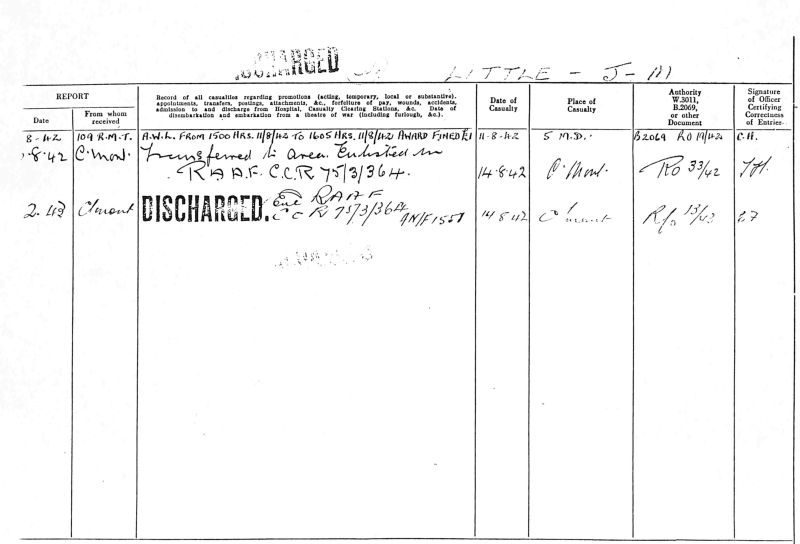 DISCHARGED
LITTLE - J-M
REPORT
Date
From whom received
Record of all casualties regarding promotions (acting, temporary, local or substantive), appointments, transfers, postings, attachments, &c., forfeiture of pay, wounds, accidents, admission to and discharge from Hospital, Casualty Clearing Stations, &c. Date of disembarkation and embarkation from a theatre of war (including furlough, &c.).
Date of Casualty
Place of Casualty
Authority W.3011, B.2069, or other Document
Signature of Officer Certifying Correctness of Entries
8-42 109 R.M.T. A.W.L. FROM 1500 HRS. 11/8/42 TO 1605 HRS. 11/8/42 AWARD FINED £1 11-8-42 5 M.D. B2069 RO 19/42 C.H.
8.42 C. Mont. Transferred to area. Enlisted in
R A A F. C.C.R 75/3/364. 14.8.42 C. Mont. RO 33/42
2.43 C/mont DISCHARGED. Enl RAAF
C C R 75/3/364 AN/F1551 14 8 42 C'mont 13/43 27